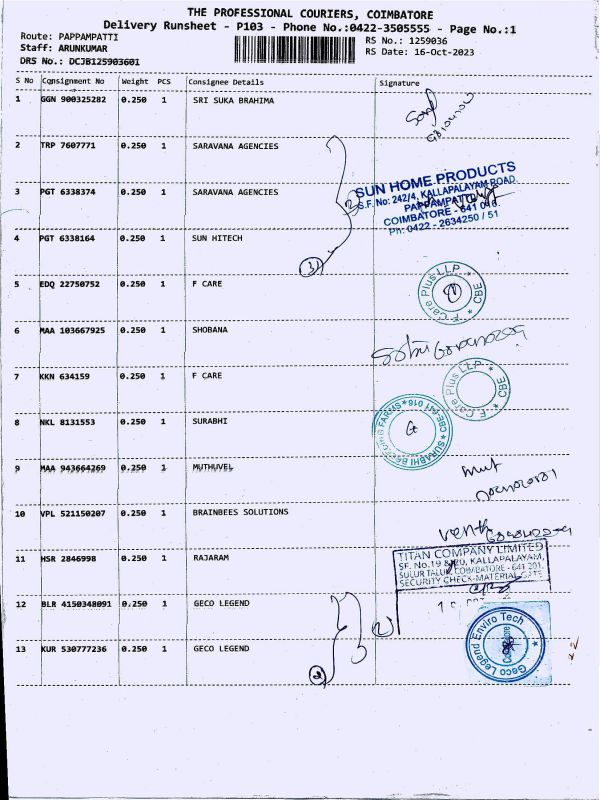 THE PROFESSIONAL COURIERS, COIMBATORE
Delivery Runsheet - P103 - Phone No.:0422-3505555 - Page No.:1
Route: PAPPAMPATTI RS No.: 1259036
Staff: ARUNKUMAR RS Date: 16-Oct-2023
DRS No.: DCJB125903601
S No Consignment No Weight PCS Consignee Details Signature
1 GGN 900325282 0.250 1 SRI SUKA BRAHIMA
2 TRP 7607771 0.250 1 SARAVANA AGENCIES
3 PGT 6338374 0.250 1 SARAVANA AGENCIES
SUN HOME PRODUCTS
S.F. No: 242/4, KALLAPALAYAM ROAD,
PAPPAMPATTI
COIMBATORE - 641 016.
Ph: 0422 - 2634250 / 51
4 PGT 6338164 0.250 1 SUN HITECH
3
5 EDQ 22750752 0.250 1 F CARE
F Care Plus LLP * CBE *
6 MAA 103667925 0.250 1 SHOBANA
7 KKN 634159 0.250 1 F CARE
F Care Plus LLP * CBE *
8 NKL 8131553 0.250 1 SURABHI
9 MAA 943664269 0.250 1 MUTHUVEL
mut
10 VPL 521150207 0.250 1 BRAINBEES SOLUTIONS
11 HSR 2846998 0.250 1 RAJARAM
TITAN COMPANY LIMITED
SF. No.19 & 20, KALLAPALAYAM,
SULUR TALUK, COIMBATORE - 641 201.
SECURITY CHECK-MATERIAL GATE
12 BLR 4150348091 0.250 1 GECO LEGEND
Geco Legend Enviro Tech
Coimbatore
13 KUR 530777236 0.250 1 GECO LEGEND
2